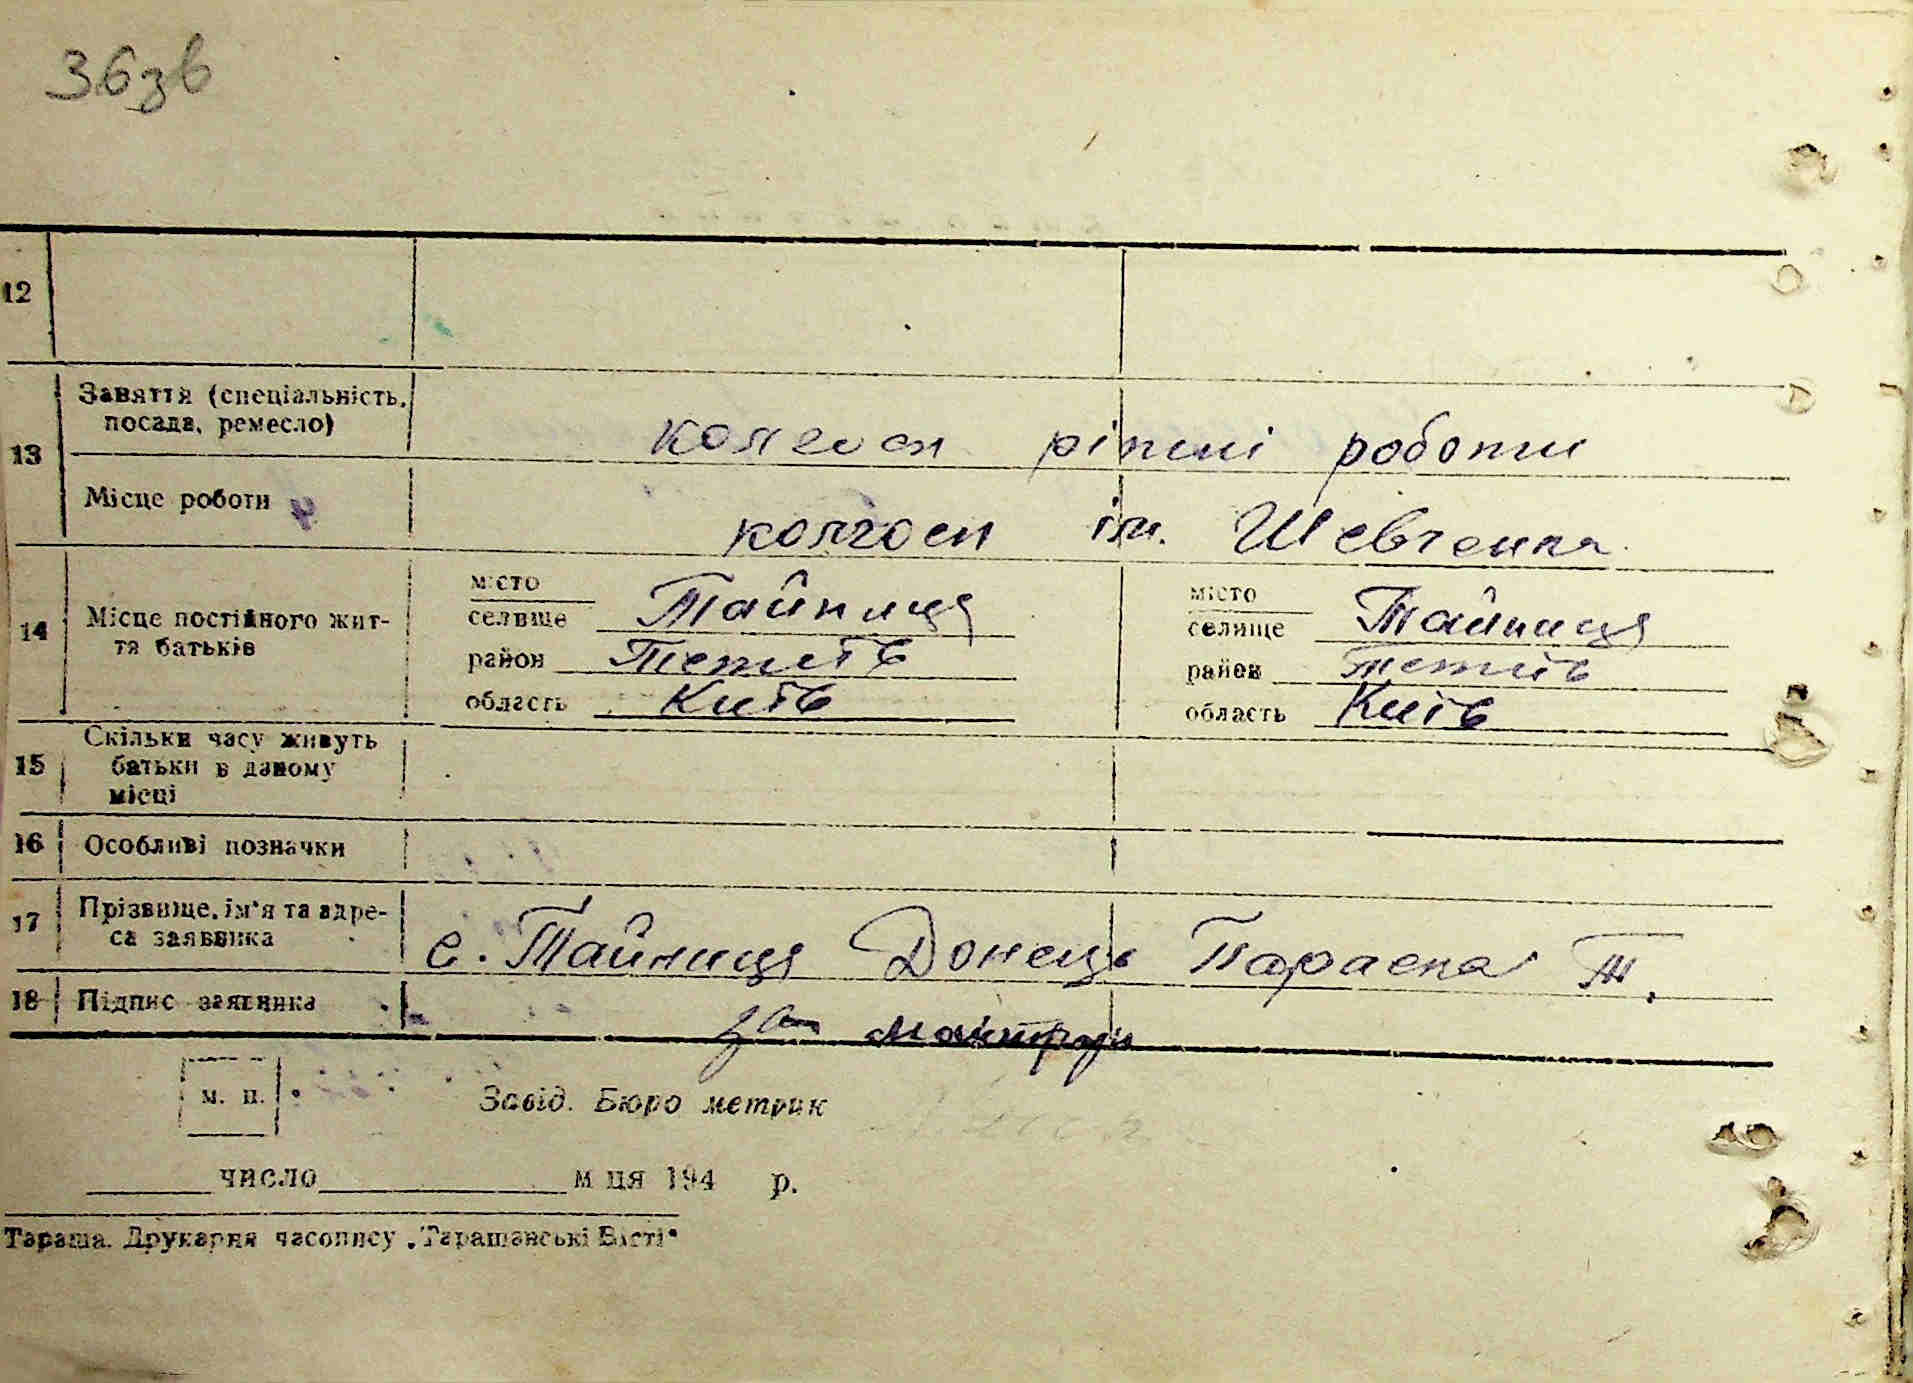 36зв
12
13 Заняття (спеціальність, посада, ремесло)
колгосп різні роботи
Місце роботи
колгосп ім. Шевченка
14 Місце постійного життя батьків
місто
селище Тайниця
район Тетиїв
область Київ
місто
селище Тайниця
район Тетиїв
область Київ
15 Скільки часу живуть батьки в даному місці
16 Особливі позначки
17 Прізвище, ім'я та адреса заявника
с. Тайниця Донець Параска Т.
18 Підпис заявника
за
м. п.
Завід. Бюро метрик
число м ця 194 р.
Тараща. Друкарня часопису „Таращанські Вісті“